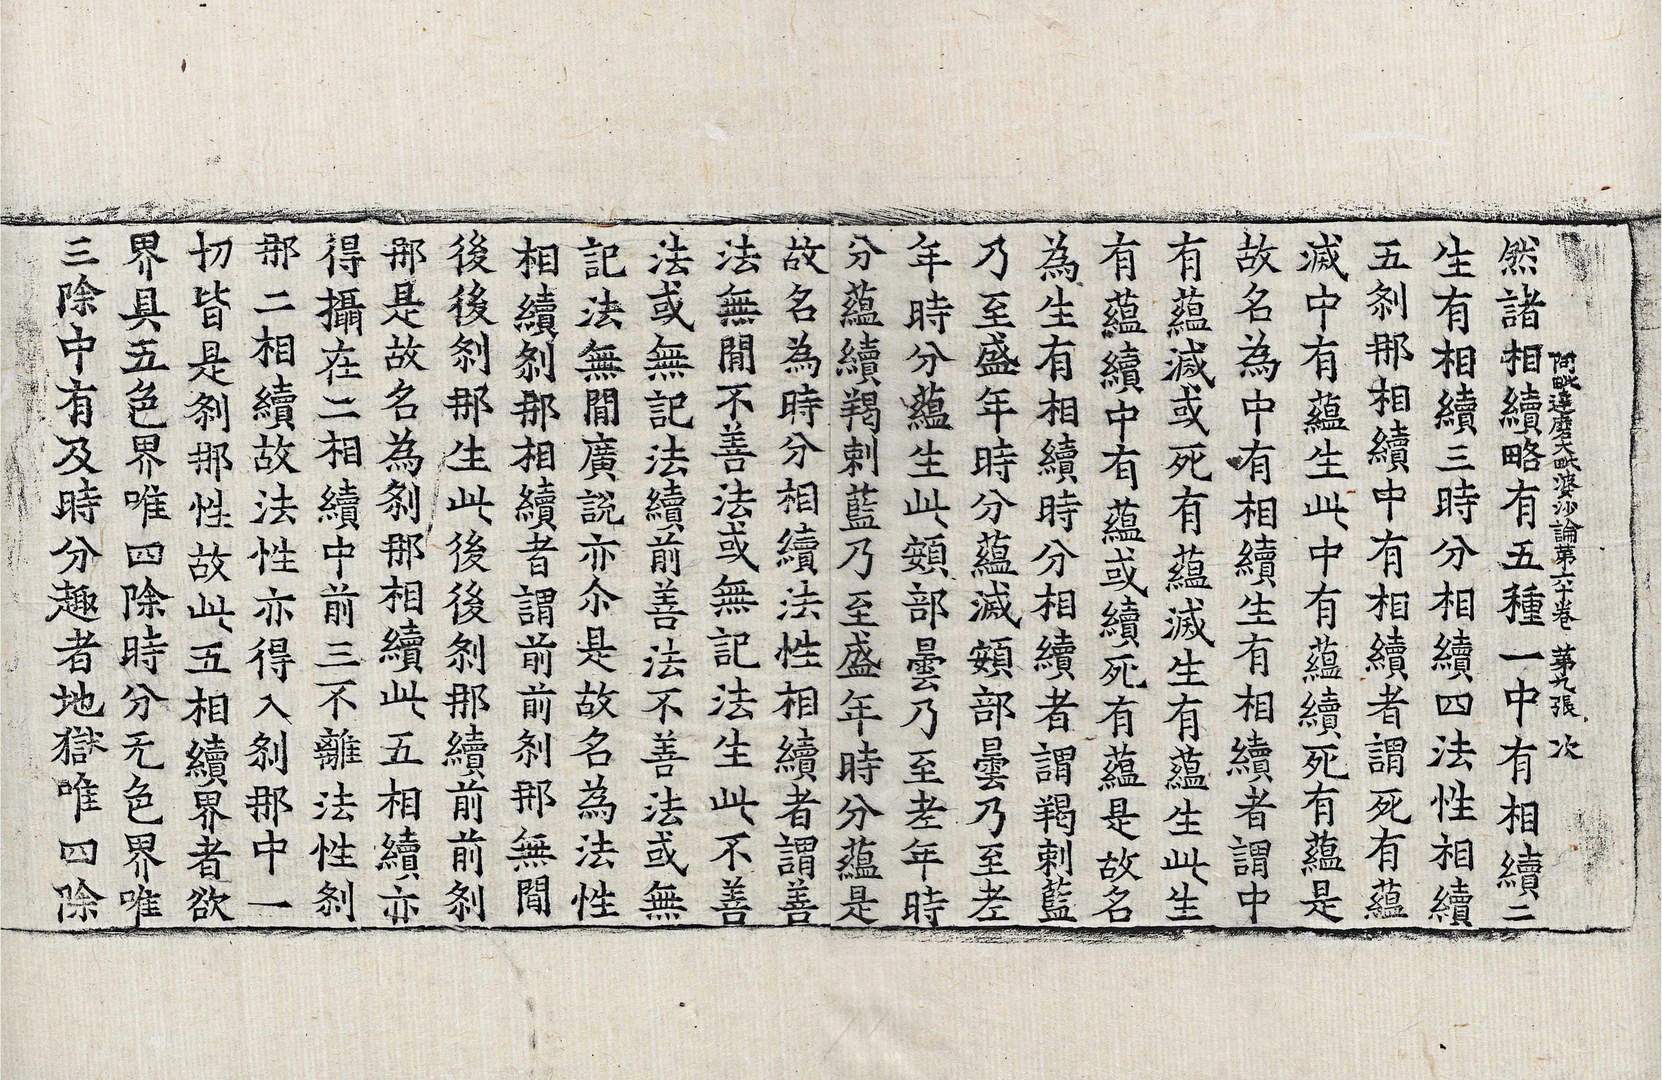 阿毗達磨大毗婆沙論第六十卷 第九張 次
然諸相續略有五種一中有相續二
生有相續三時分相續四法性相續
五刹那相續中有相續者謂死有蘊
滅中有蘊生此中有蘊續死有蘊是
故名為中有相續生有相續者謂中
有蘊滅或死有蘊滅生有蘊生此生
有蘊續中有蘊或續死有蘊是故名
為生有相續時分相續者謂羯剌藍
乃至盛年時分蘊滅頞部曇乃至老
年時分蘊生此頞部曇乃至老年時
分蘊續羯剌藍乃至盛年時分蘊是
故名為時分相續法性相續者謂善
法無閒不善法或無記法生此不善
法或無記法續前善法不善法或無
記法無閒廣說亦尒是故名為法性
相續刹那相續者謂前前刹那無閒
後後刹那生此後後刹那續前前刹
那是故名為刹那相續此五相續亦
得攝在二相續中前三不離法性刹
那二相續故法性亦得入刹那中一
切皆是刹那性故此五相續界者欲
界具五色界唯四除時分无色界唯
三除中有及時分趣者地獄唯四除